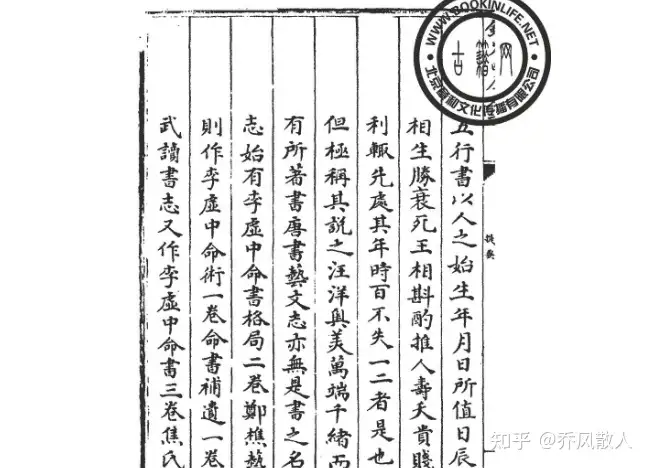 WWW.BOOKINLIFE.NET
古籍网
文化传播有限公司
提要
五行書以人之始生年月日所值日辰
相生勝衰死王相斟酌推人壽夭貴賤
利輒先處其年時百不失一二者是也
但極稱其說之汪洋奧美萬端千緒而
有所著書唐書藝文志亦無是書之名
志始有李虛中命書格局二卷鄭樵藝
則作李虛中命術一卷命書補遺一卷
武讀書志又作李虛中命書三卷焦氏
知乎 @乔风散人